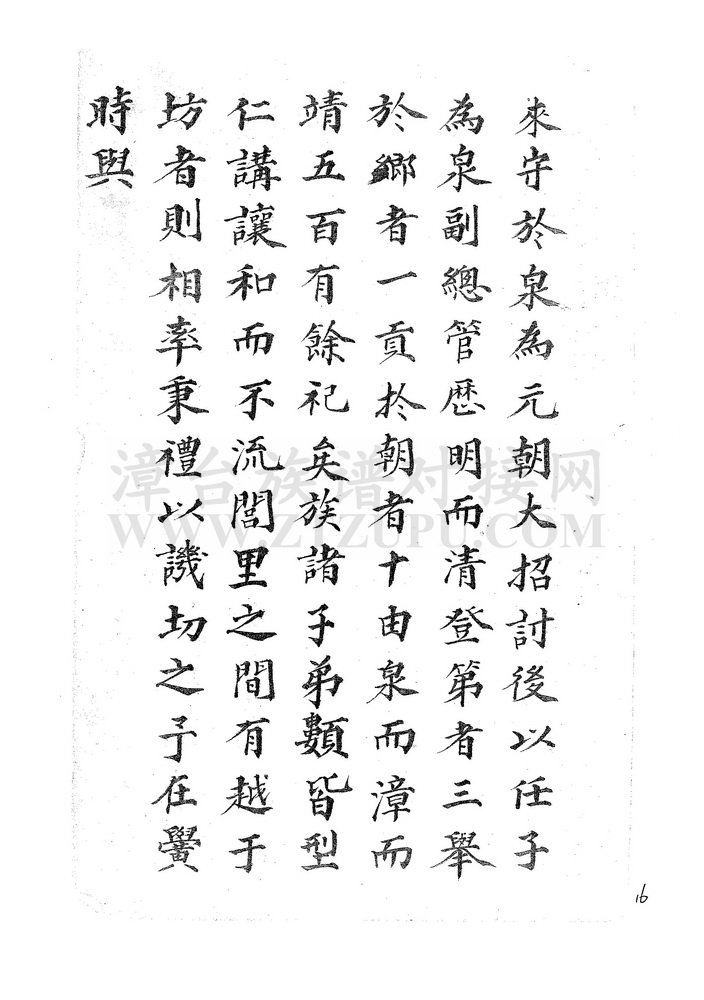 來守於泉為元朝大招討後以任子
為泉副總管歷明而清登第者三舉
於鄉者一貢於朝者十由泉而漳而
靖五百有餘祀矣族諸子弟類皆型
仁講讓和而不流閭里之間有越于
坊者則相率秉禮以譏切之予在黌
時與
漳台族谱对接网
WWW.ZTZUPU.COM
16